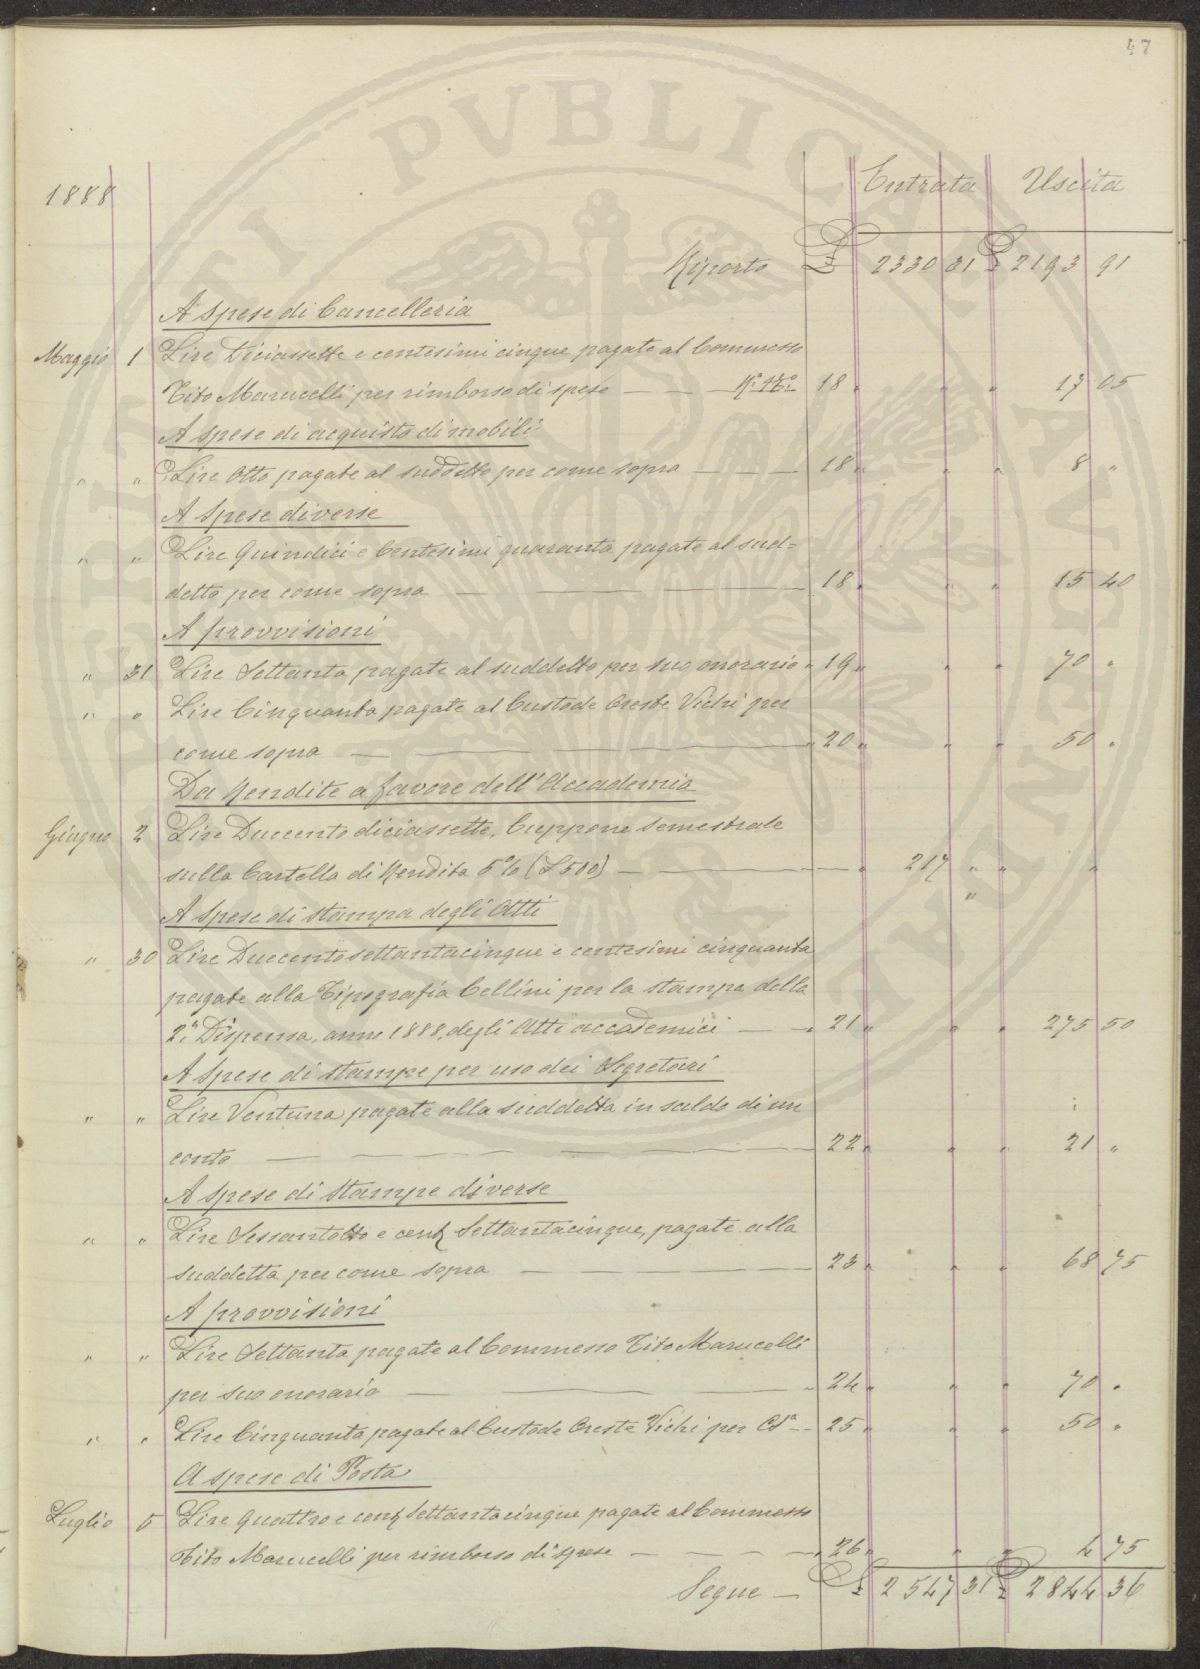 47
1888 Entrata Uscita
Riporto £ 2330 31 £ 2193 91
A spese di Cancelleria
Maggio 1 Lire Diciassette e centesimi cinque pagate al Commesso
Tito Marucelli per rimborso di spese — — 18 " " " 17 05
A spese di acquisto di mobili
" " Lire Otto pagate al suddetto per come sopra — — — 18 " " " 8 "
A spese diverse
" " Lire Quindici e Centesimi quaranta pagate al sud=
detto per come sopra — — — 18 " " " 15 40
A provvisioni
" 31 Lire Settanta pagate al suddetto per suo onorario " 19 " " " 70 "
" " Lire Cinquanta pagate al Custode Oreste Vichi per
come sopra — — — " 20 " " " 50 "
Da Rendite a favore dell'Accademia
Giugno 2 Lire Duecento diciassette, Cuppone semestrale
sulla Cartella di Rendita 5% (£ 500) — — " 217 " " "
A spese di stampa degli Atti
" 30 Lire Duecentosettantacinque e centesimi cinquanta
pagate alla Tipografia Cellini per la stampa della
2.a Dispensa, anno 1888, degli Atti accademici — — " 21 " " " 275 50
A spese di stampe per uso dei Segretari
" " Lire Ventuna pagate alla suddetta in saldo di un
conto — — — 22 " " " 21 "
A spese di Stampe diverse
" " Lire Sessantotto e cent Settantacinque, pagate alla
suddetta per come sopra — — — 23 " " " 68 75
A provvisioni
" " Lire Settanta pagate al Commesso Tito Marucelli
per suo onorario — — " 24 " " " 70 "
" " Lire Cinquanta pagate al Custode Oreste Vichi per Cs.a — — 25 " " " 50 "
A spese di Posta
Luglio 5 Lire Quattro e cent Settantacinque pagate al Commesso
Tito Marucelli per rimborso di spese — — — " 26 " " " 4 75
Segue — £ 2547 31 £ 2844 36